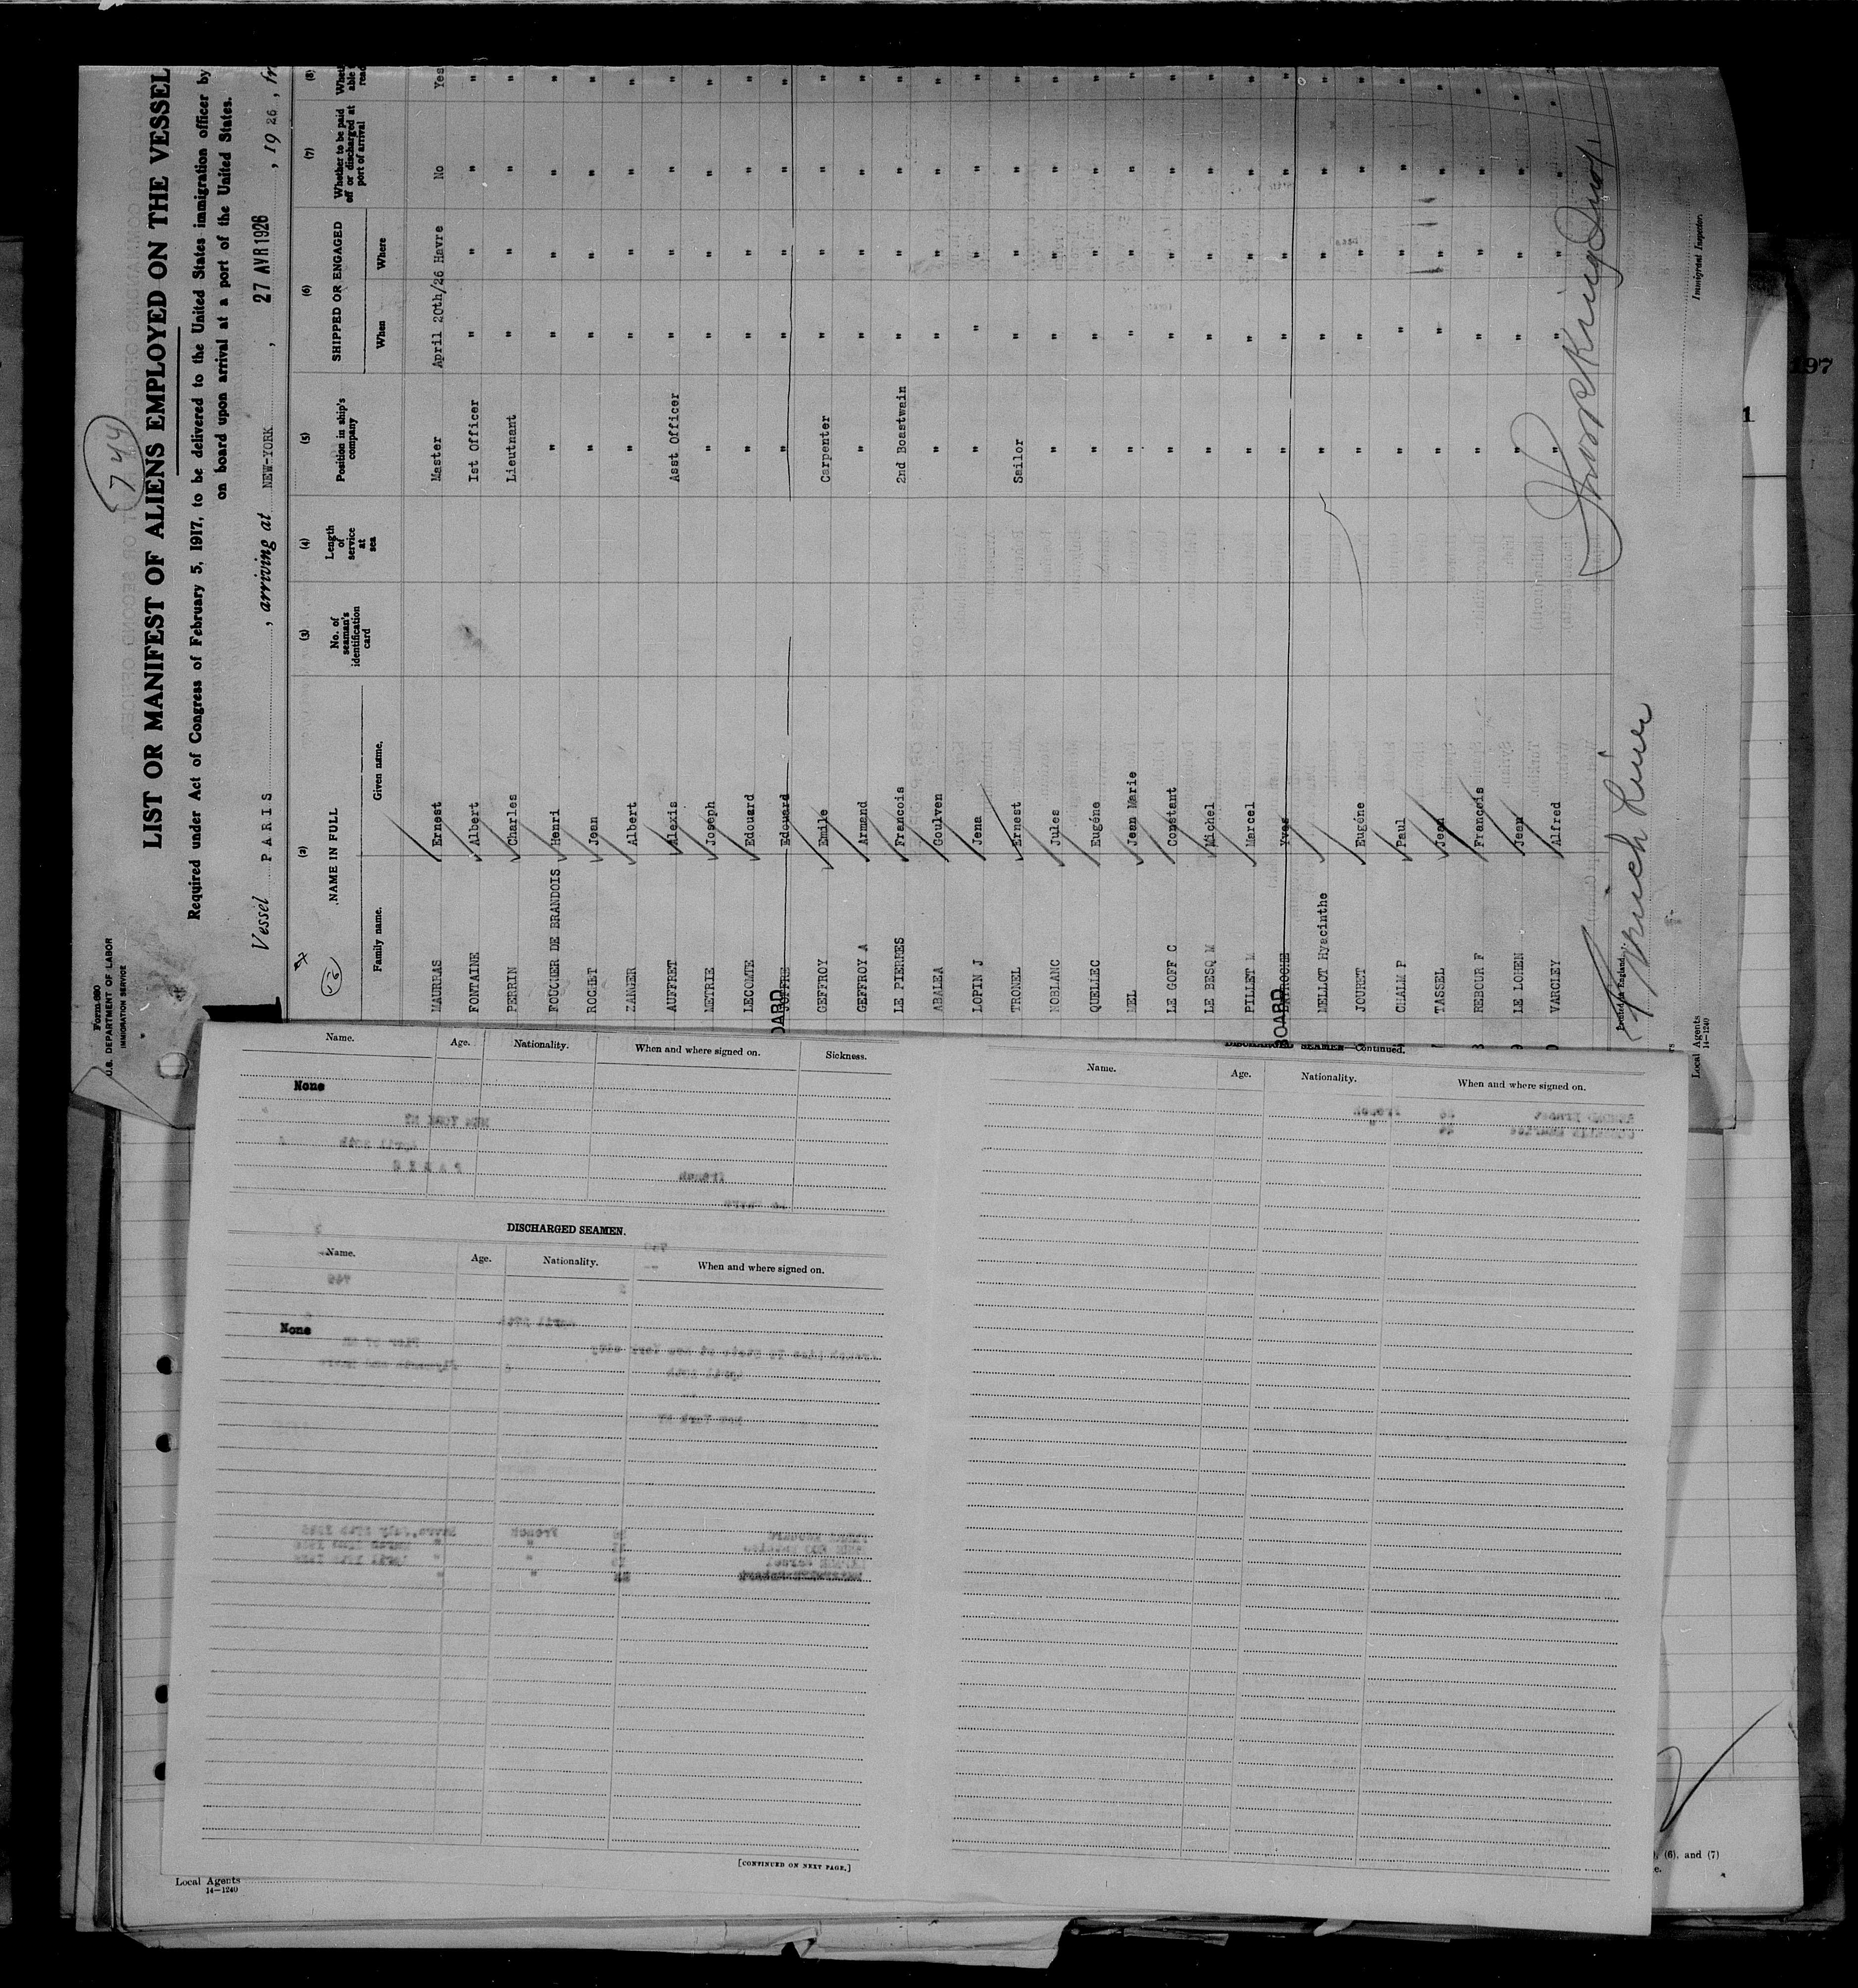 7 44
Form 680
U.S. DEPARTMENT OF LABOR
IMMIGRATION SERVICE
LIST OR MANIFEST OF ALIENS EMPLOYED ON THE VESSEL
Required under Act of Congress of February 5, 1917, to be delivered to the United States immigration officer by
on board upon arrival at a port of the United States.
Vessel PARIS , arriving at NEW-YORK , 27 AVR 1926 , 19 26 , fr
(2) (3) (4) (5) (6) (7) (8)
NAME IN FULL No. of seaman's identification card Length of service at sea Position in ship's company SHIPPED OR ENGAGED Whether to be paid off or discharged at port of arrival
Family name. Given name. When Where
MAURRAS Ernest Master April 20th/26 Havre No Yes
FONTAINE Albert 1st Officer " " " "
PERRIN Charles Lieutnant " " " "
FOUCHER DE BRANDOIS Henri " " " " "
ROCHET Jean " " " " "
ZANGER Albert " " " " "
AUFFRET Alexis Asst Officer " " " "
METRIE Joseph " " " " "
LECOMTE Edouard " " " " "
JOUFFE Edouard " " " " "
GEFFROY Emile Carpenter " " " "
GEFFROY A Armand " " " " "
LE PIERRES Francois 2nd Boastwain " " " "
ABALEA Goulven " " " " "
LOPIN J Jena " " " " "
TRONEL Ernest Sailor " " " "
NOBLANC Jules " " " " "
QUELLEC Eugéne " " " " "
MEL Jean Marie " " " " "
LE GOFF C Constant " " " " "
LE BESQ M Michel " " " " "
PILLET M Marcel " " " " "
Yves " " " " "
BOARD
MELLOT Hyacinthe " " " " "
JOURET Eugéne " " " " "
CHALM P Paul " " " " "
TASSEL Jean " " " " "
REBOUR F Francois " " " " "
LE LOHEN Jean " " " " "
VARCLEY Alfred " " " " "
French Line
Immigrant Inspector.
Local Agents
14—1240
197
1
Name. Age. Nationality. When and where signed on. Sickness.
None
DISCHARGED SEAMEN.
Name. Age. Nationality. When and where signed on.
None
[CONTINUED ON NEXT PAGE.]
DISCHARGED SEAMEN—Continued.
Name. Age. Nationality. When and where signed on.
Local Agents
14—1240
(6), and (7)